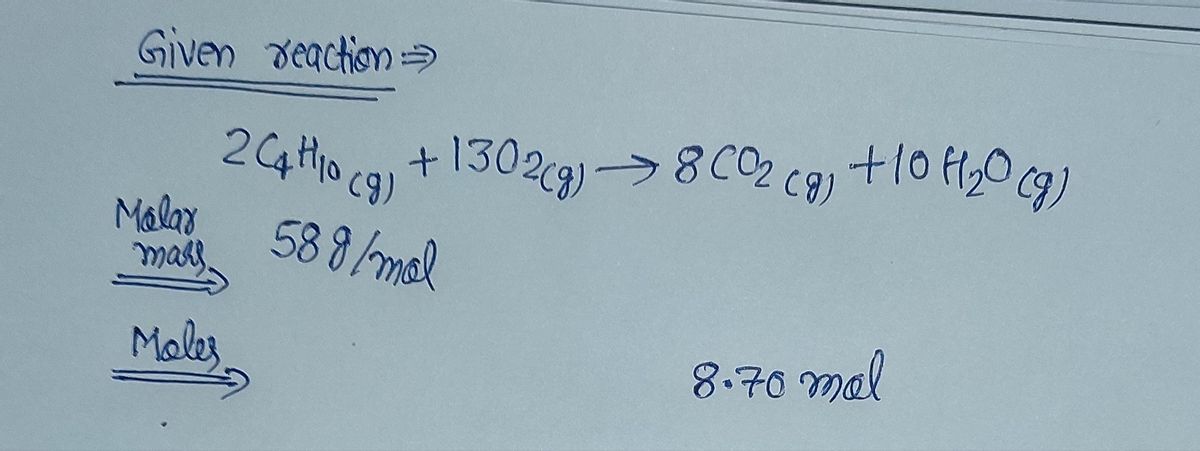 Given reaction ⇒
2C₄H₁₀(g) + 13O₂(g) → 8CO₂(g) + 10H₂O(g)
Molar
mass ⇒ 58 g/mol
Moles ⇒ 8.70 mol